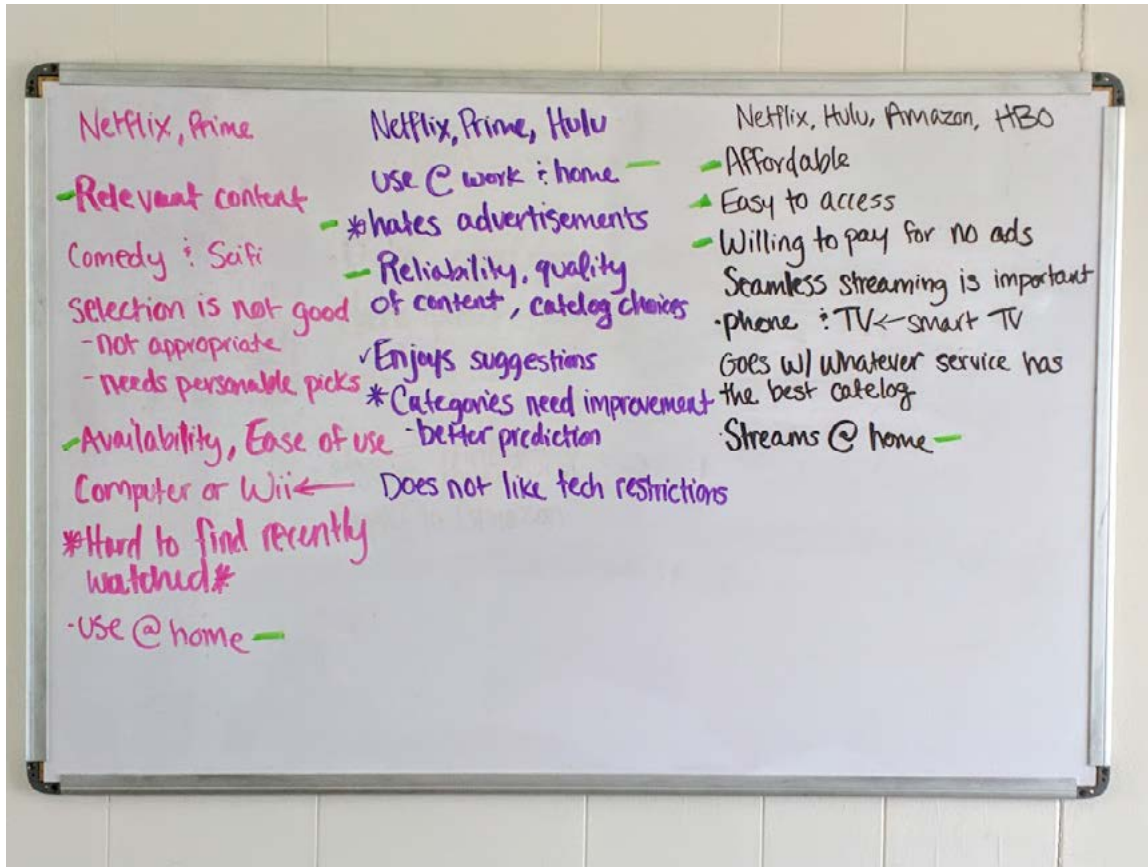 Netflix, Prime
- Relevant content
Comedy & Scifi
Selection is not good
- not appropriate
- needs personable picks
- Availability, Ease of use
Computer or Wii ←
*Hard to find recently
watched*
· use @ home -
Netflix, Prime, Hulu
use @ work & home -
- *hates advertisements
- Reliability, quality
of content, catelog choices
✓ Enjoys suggestions
* Categories need improvement
- better prediction
Does not like tech restrictions
Netflix, Hulu, Amazon, HBO
- Affordable
- Easy to access
- Willing to pay for no ads
Seamless streaming is important
· phone & TV ← smart TV
Goes w/ whatever service has
the best catelog
· Streams @ home -